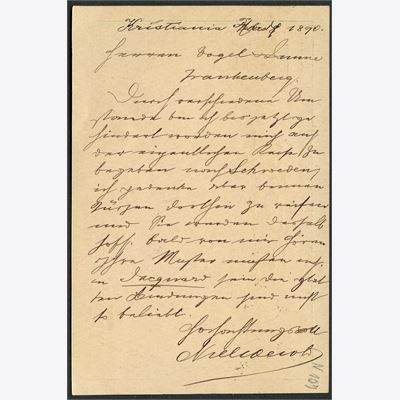 Kristiania 1890.
Herren Vogel &
Frankenberg.
Durch verschiedene Um
stände bin ich bis jetzt ge
hindert worden mich auf
der eigentlichen Reise zu
begeben nach Schweden,
ich gedenke aber binnen
kurzen dorthin zu reisen
und Sie werden deshalb
hoff. bald von mir hören
Ihre Muster müssen
in Jacquard sein die glat
ten Bindungen sind nicht
so beliebt.
Hochachtungsvoll